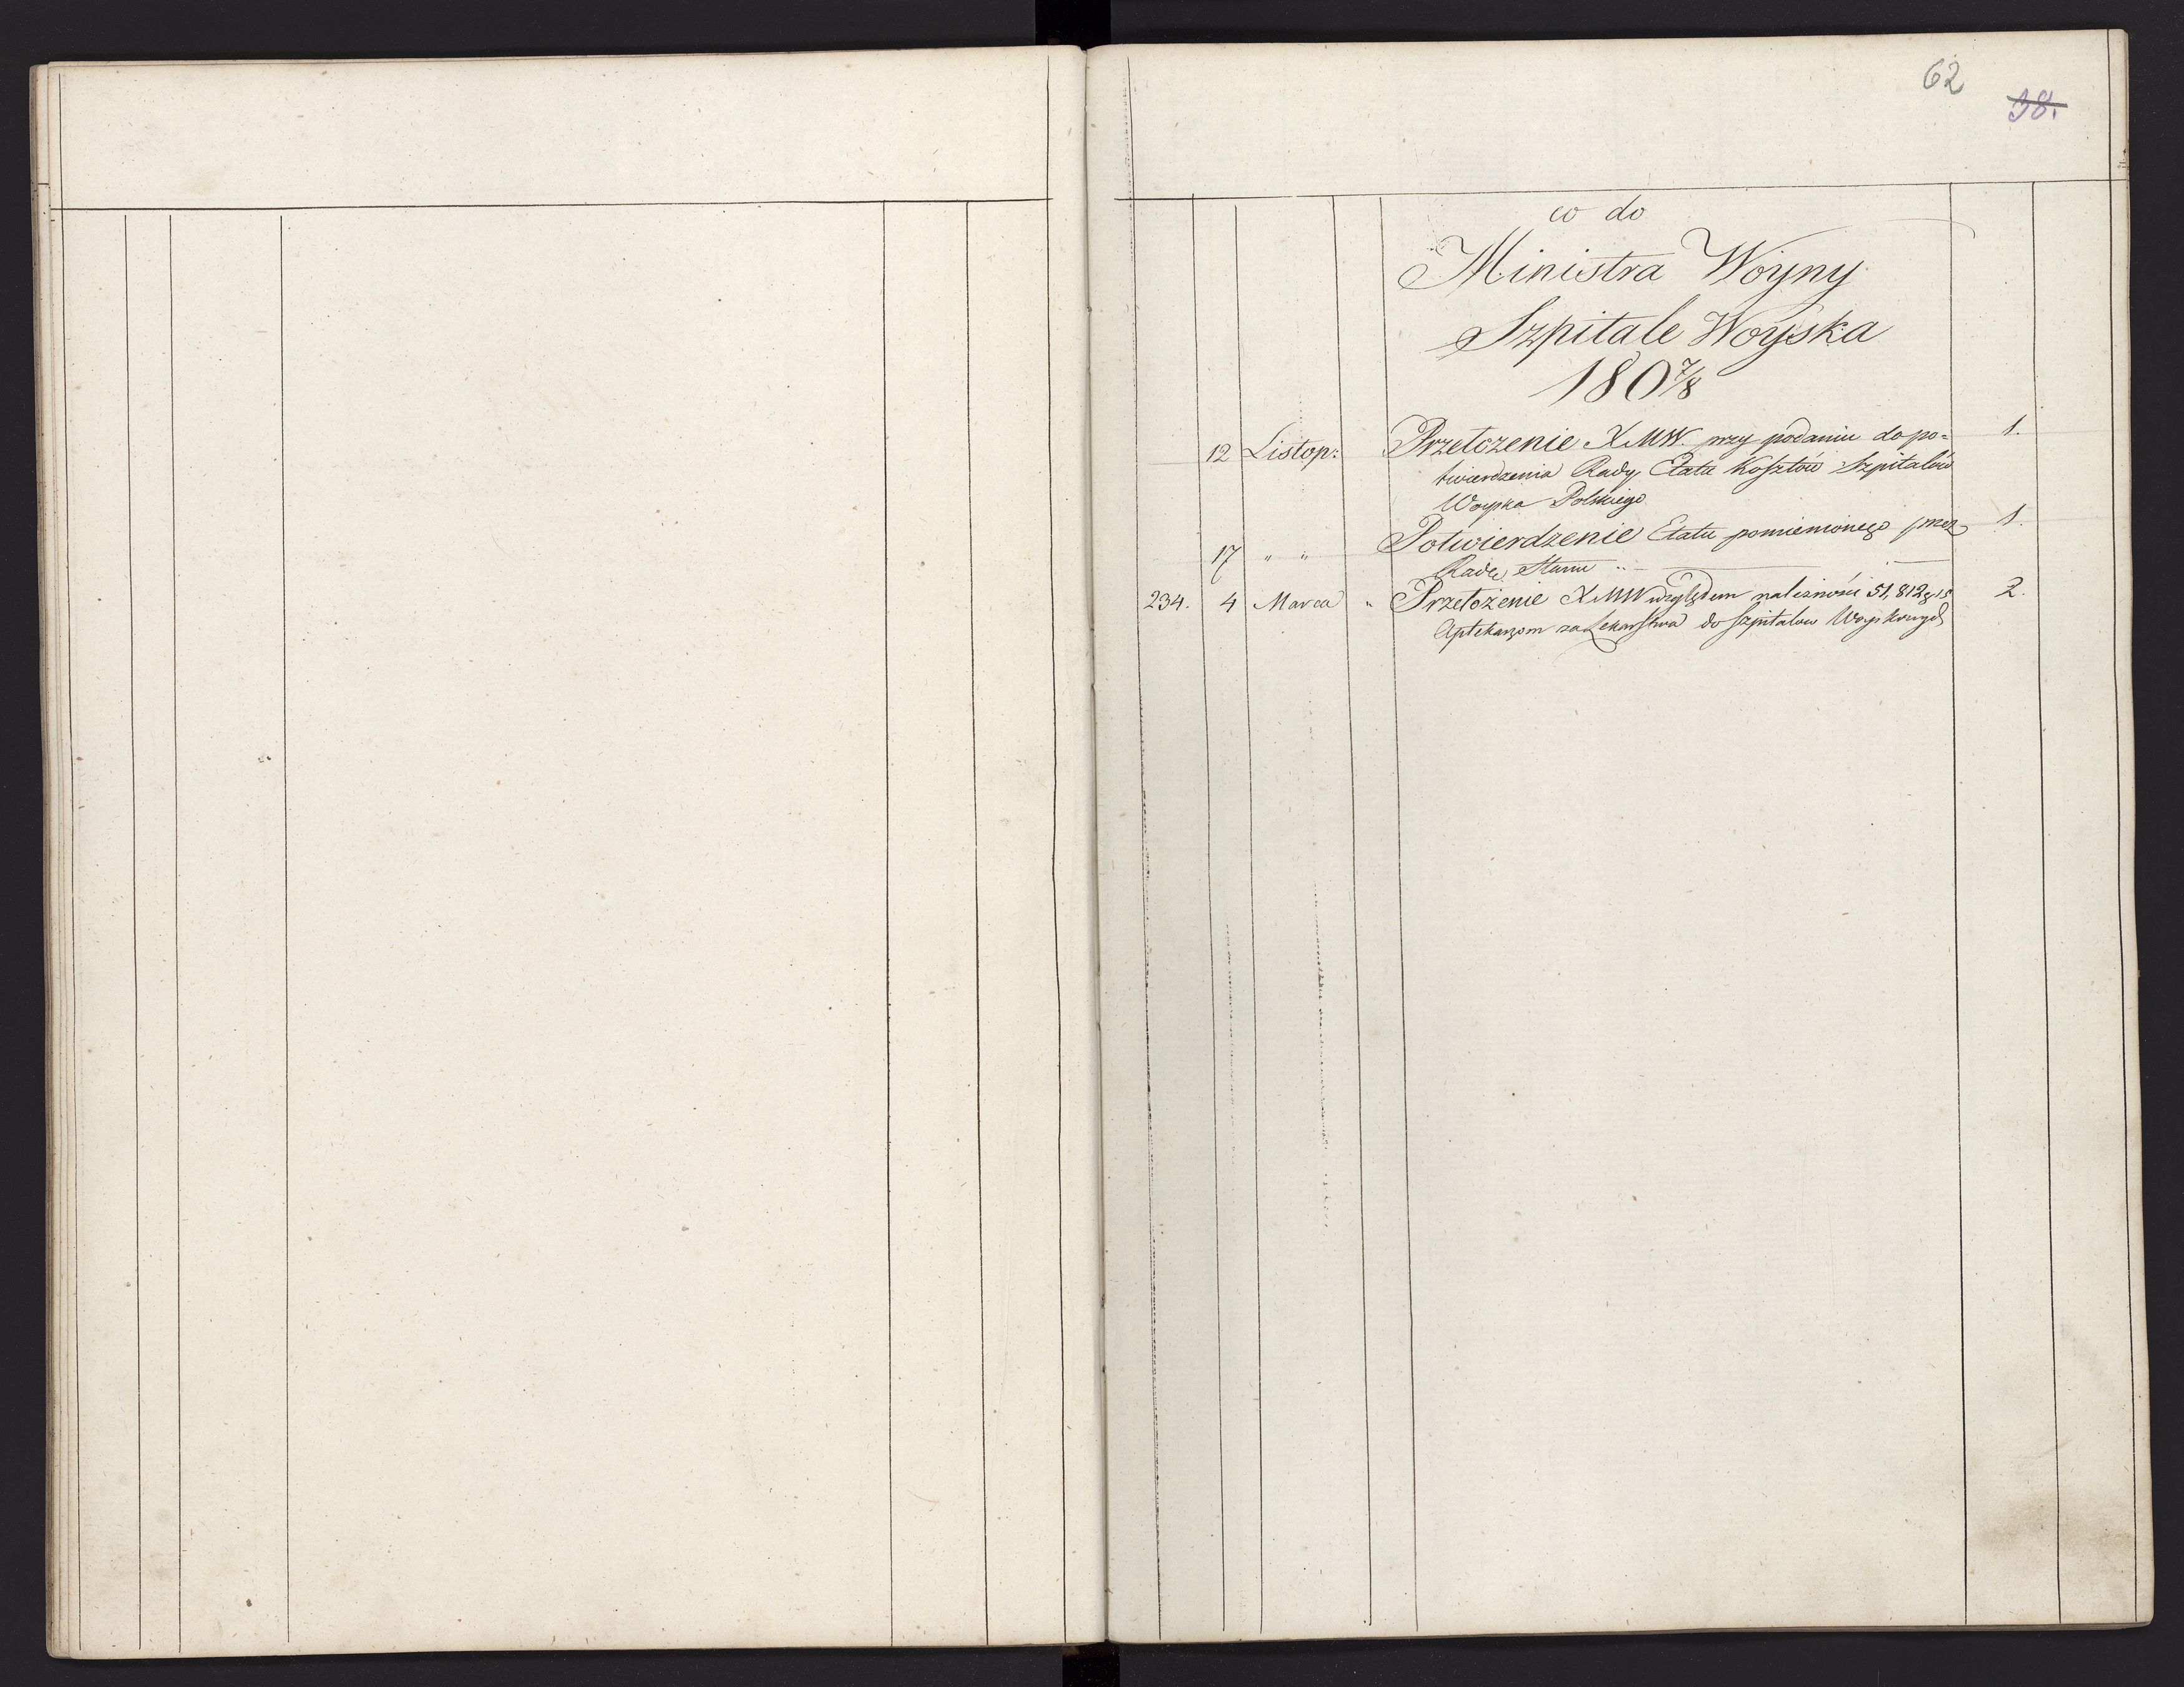 62
38.
co do
Ministra Woyny
Szpitale Woyska
180 7/8
12 Listop: Przełożenie X.M.W. przy podaniu do po= 1.
twierdzenia Rady, Etatu Kosztów Szpitalów
Woyska Polskiego
17 " " Potwierdzenie Etatu pomienionego przez 1.
Radę Stanu
234. 4 Marca " Przełożenie XMW względem należności 51,812 g 15 2.
Aptekarzom za Lekarstwa do Szpitalow Woyskowych